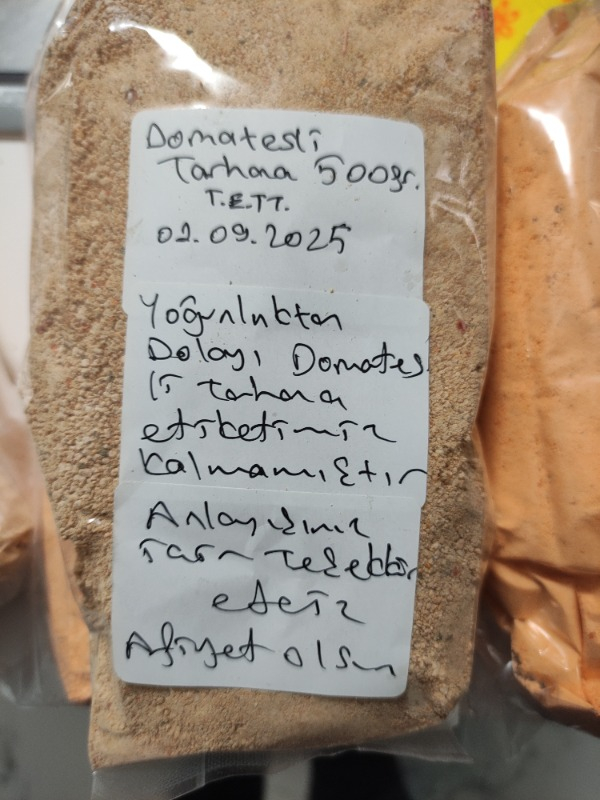 Domatesli
Tarhana 500gr.
T.E.T.T.
01.09.2025
Yoğunluktan
Dolayı Domates
li tarhana
etiketimiz
kalmamıştır
Anlayışınız
için Teşekkür
ederiz
Afiyet olsun